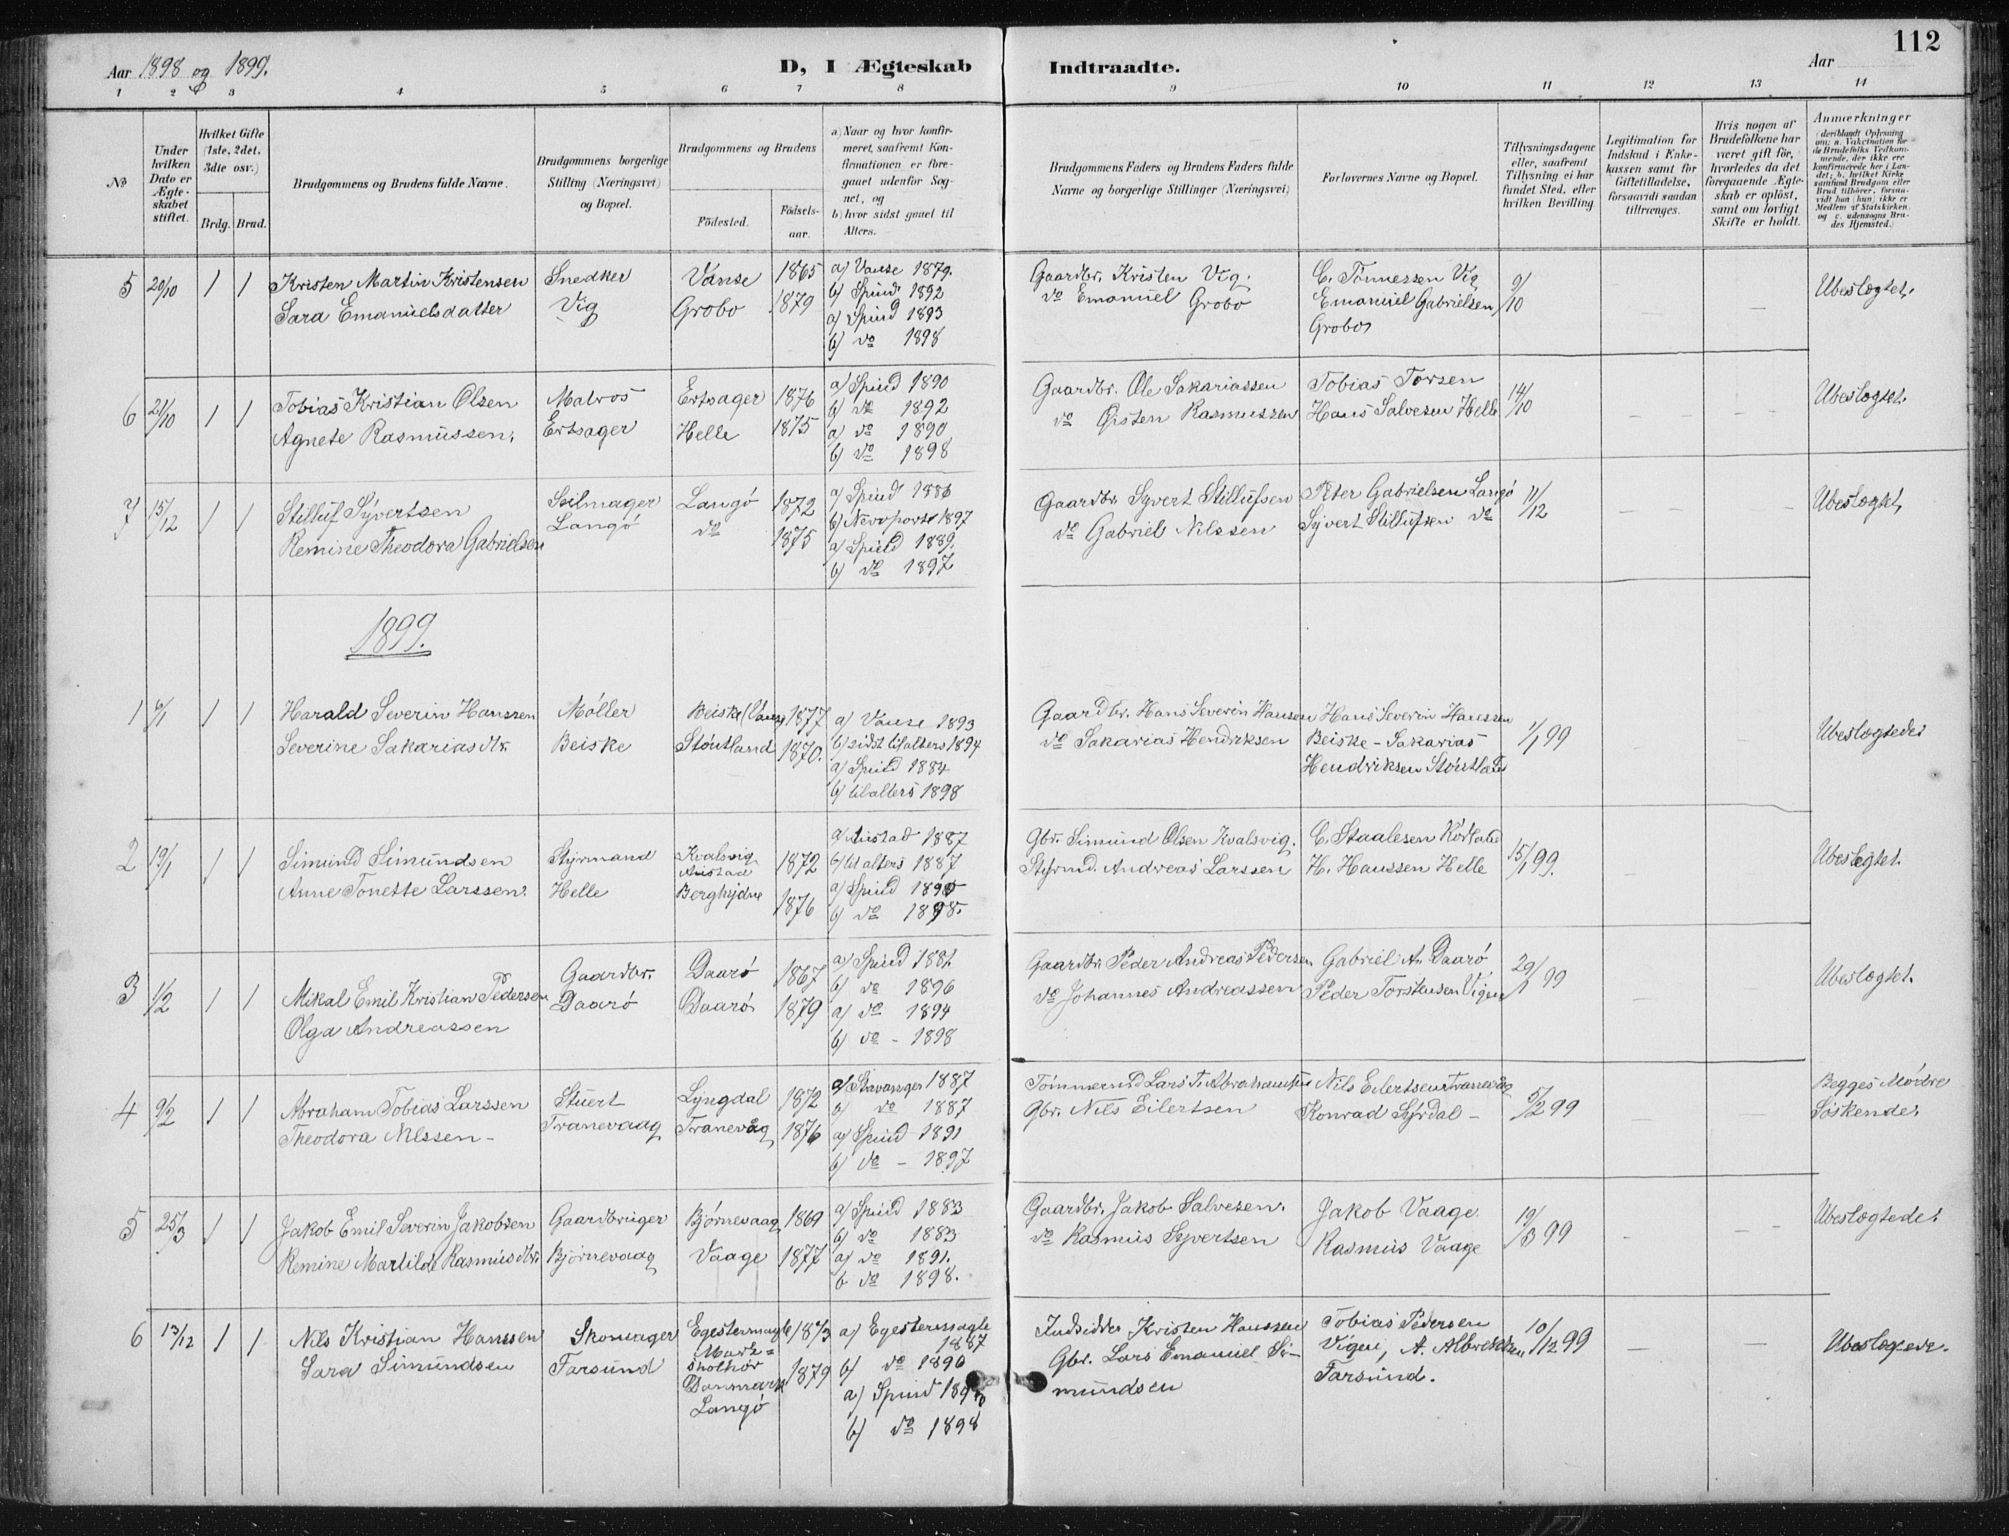 112
Aar 1898 og 1899.
D, I Ægteskab Indtraadte.
Aar
1 2 3 4 5 6 7 8 9 10 11 12 13 14
No
Under hvilken Dato er Ægteskabet stiftet.
Hvilket Gifte (1ste, 2det, 3dte osv.)
Brdg. Brud.
Brudgommens og Brudens fulde Navne.
Brudgommens borgerlige Stilling (Næringsvei) og Bopæl.
Brudgommens og Brudens
Födested.
Födsels-aar.
a) Naar og hvor konfirmeret, saafremt Konfirmationen er foregaaet udenfor Sognet, og
b) hvor sidst gaaet til Alters.
Brudgommens Faders og Brudens Faders fulde Navne og borgerlige Stillinger (Næringsvei)
Forlovernes Navne og Bopæl.
Tillysningsdagene eller, saafremt Tillysning ei har fundet Sted, efter hvilken Bevilling.
Legitimation for Indskud i Enkekassen samt for Giftetilladelse, forsaavidt saadan tiltrænges.
Hvis nogen af Brudefolkene har været gift för, hvorledes da det foregaaende Ægteskab er oplöst, samt om lovligt Skifte er holdt.
Anmærkninger
(deriblandt Oplysning om: a. Vakcination for de Brudefolks Vedkommende, der ikke ere konfirmerede her i Landet; b. hvilket Kirkesamfund Brudgom eller Brud tilhörer, forsaavidt han (hun) ikke er Medlem af Statskirken, og c. udensogns Brudes Hjemsted.)
5 20/10 1 1 Kristen Martin Kristensen Snedker Vanse 1865 a) Vanse 1879. Gaardbr. Kristen Vig. C. Tönnessen Vig 9/10 Ubeslægtet.
Sara Emanuelsdatter Vig Grobo 1879 b) Spind 1892 do Emanuel Grobo Emanuel Gabrielsen
a) Spind 1893 Grobo
b) do 1898
6 21/10 1 1 Tobias Kristian Olsen Matros Ertsager 1876 a) Spind 1890 Gaardbr. Ole Sakariassen Tobias Torsen 14/10 Ubeslægtet.
Agnete Rasmussen. Ertsager Helle 1875 b) do 1892 do Örsten Rasmussen Hans Salvesen Helle
a) do 1890
b) do 1898
7 15/12 1 1 Stilluf Syvertsen Seilmager Langö 1872 a) Spind 1886 Gaardbr. Syvert Stillufsen Peter Gabrielsen Langö 11/12 Ubeslægtet
Remine Theodora Gabrielsen Langö do 1875 b) Nevvport 1897 do Gabriel Nilssen Syvert Stillufsen do
a) Spind 1889.
b) do 1897
1899.
1 6/1 1 1 Harald Severin Hanssen Möller Beiske (Vanse 1877 a) Vanse 1893 Gaardbr. Hans Severin Hansen Hans Severin Hanssen 1/1 99 Ubeslægtede
Severine Sakariasdtr. Beiske Stöutland 1870. b) sidst til alters 1894 do Sakarias Hendriksen Beiske - Sakarias
a) Spind 1884 Hendriksen Stöutland
b) til alters 1898
2 19/1 1 1 Simund Simundsen Styrmand Kvalsvig Austad 1872 a) Austad 1887 Gbr. Simund Olsen Kvalsvig. C. Staalesen 15/1 99. Ubeslægtet.
Anne Tonette Larssen. Helle 1876 b) til alters 1887 Styrmd. Andreas Larssen H. Hanssen Helle
a) Spind 1890
b) do 1898.
3 1/2 1 1 Mikal Emil Kristian Pedersen Gaardbr. Daarö 1867 a) Spind 1882 Gaardbr. Peder Andreas Pedersen Gabriel A. Daarö 29/1 99 Ubeslægtet.
Olga Andreassen Daarö Daarö 1879 b) do 1896 do Johannes Andreassen Peder Torstensen Vigen
a) do 1894
b) do - 1898
4 9/2 1 1 Abraham Tobias Larssen Stuert Lyngdal 1872 a) Stavanger 1887 Tömmermd Lars T. Abrahamsen Nils Eilertsen Tranevåg 5/2 99 Begges Mödre
Theodora Nilssen - Tranevaag Tranevåg 1876 b) do 1887 Gbr. Nils Eilertsen Konrad Syrdal - Söskende.
a) Spind - 1891
b) do - 1897
5 25/3 1 1 Jakob Emil Severin Jakobsen Gaardbruger Björnevaag 1869 a) Spind 1883 Gaardbr. Jakob Salvesen. Jakob Vaage 19/3 99 Ubeslægtede.
Remine Martilde Rasmusdtr. Björnevaag Vaage 1877 b) do 1883 do Rasmus Syvertsen Rasmus Vaage
a) do 1891.
b do 1898.
6 13/12 1 1 Nils Kristian Hanssen Skomager Egestermagle 1873 a) Egestermagle 1887 Indsidder Kristen Hanssen Tobias Pedersen 10/12 99 Ubeslægede.
Sara Simundsen Farsund Danmark Langö 1879 b) do 1890 Gbr. Lars Emanuel Si- Vigen, A. Albrektsen
a) Spind mundsen Farsund.
b) do 1898